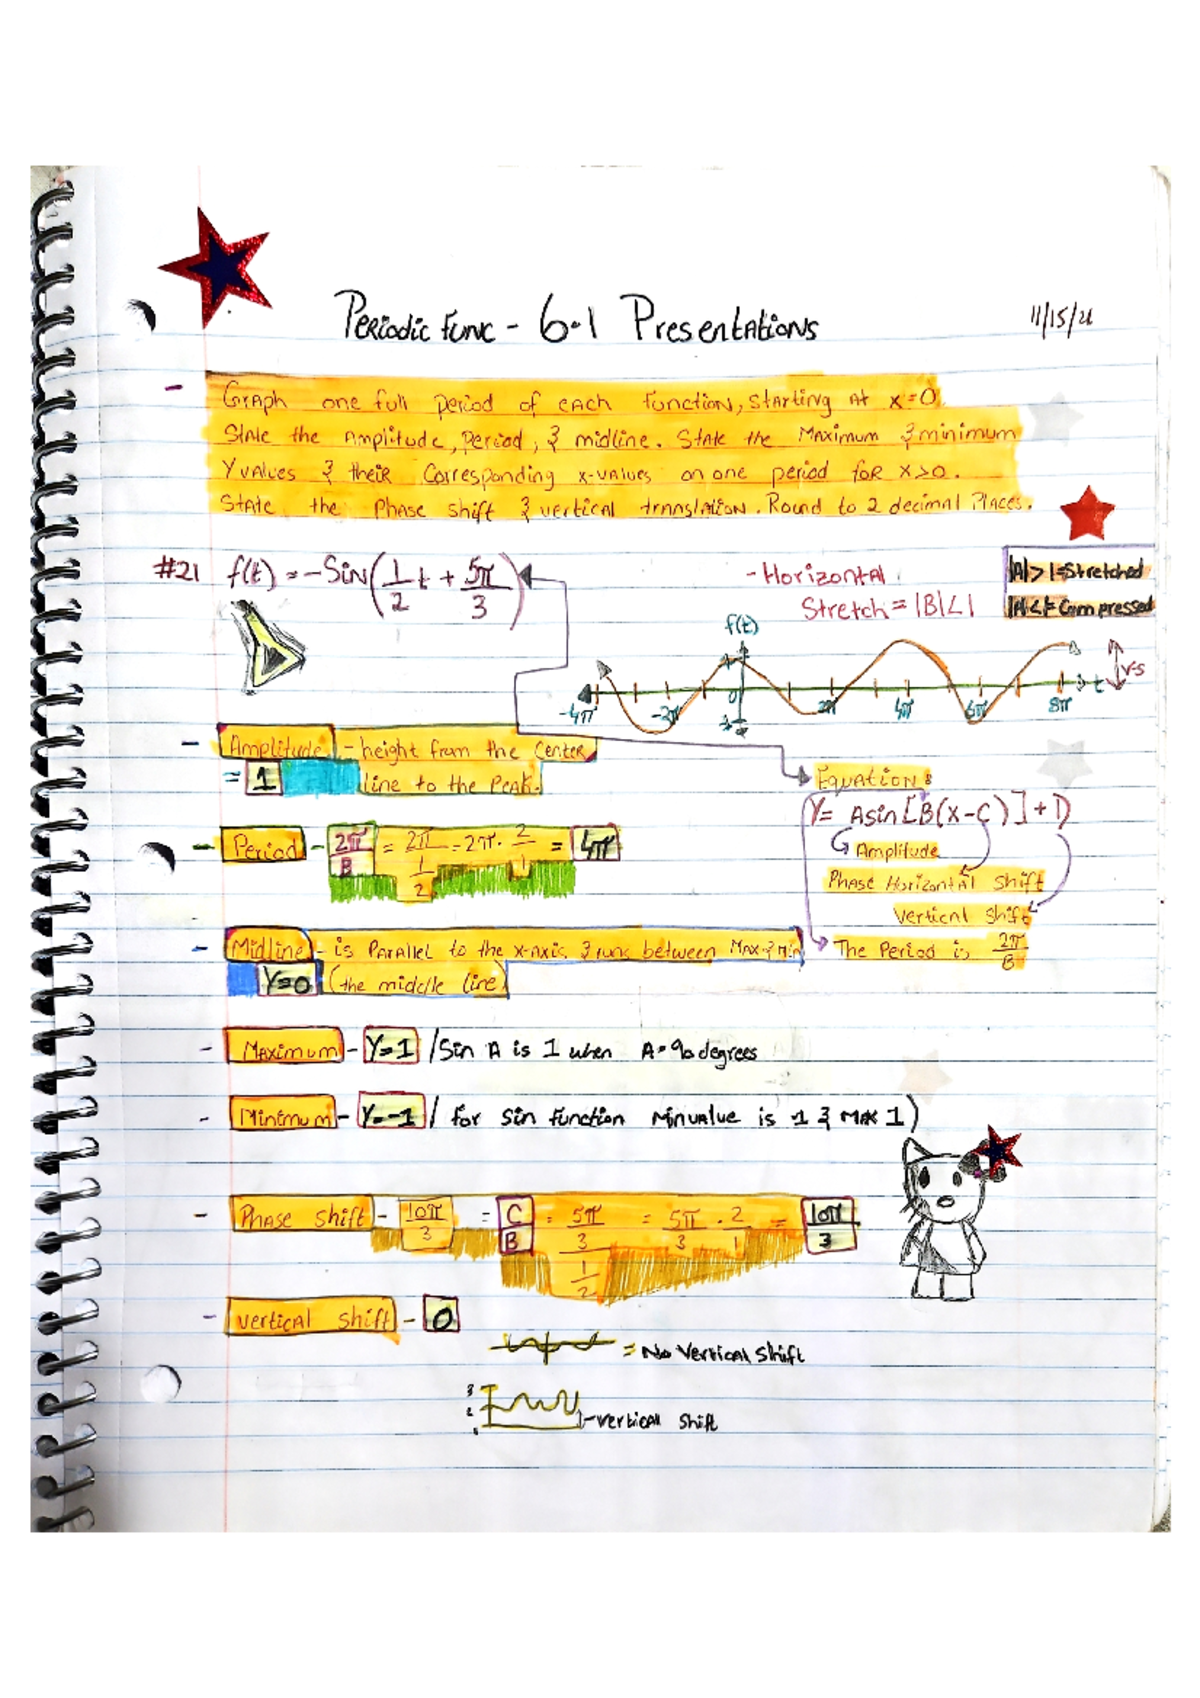 Periodic Func - 6.1 Presentations 11/15/21
- Graph one full period of each function, starting at x=0.
State the Amplitude, period, & midline. State the Maximum & minimum
Y values & their Corresponding x-values on one period for x>0.
State the Phase shift & vertical translation. Round to 2 decimal Places.
#21 f(t) = -Sin(1/2 t + 5π/3)
- Horizontal
Stretch = |B|∠|
|A|>1=Stretched
|A|<1=Compressed
f(t)
V-S
-4π -2π 0 2π 4π 6π 8π t
- Amplitude - height from the Center
= 1 line to the Peak.
Equation:
Y= Asin[B(x-C)]+D
Amplitude
Phase Horizontal Shift
Vertical Shift
The Period is 2π/B
- Period - 2π/B = 2π/(1/2) = 2π · 2/1 = 4π
- Midline - is Parallel to the x-axis & runs between Max & Min
Y=0 (the middle line)
- Maximum - Y=1 / Sin A is 1 when A=90 degrees
- Minimum - Y=-1 / for Sin function Min value is -1 & Max 1)
- Phase shift - 10π/3 = C/B = (5π/3)/(1/2) = 5π/3 · 2/1 = 10π/3
- vertical shift - 0
= No Vertical Shift
3
2
1
-vertical Shift